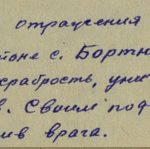 отражения
районе с. Бортн
храбрость, уни
в. Своим под
ив врага.